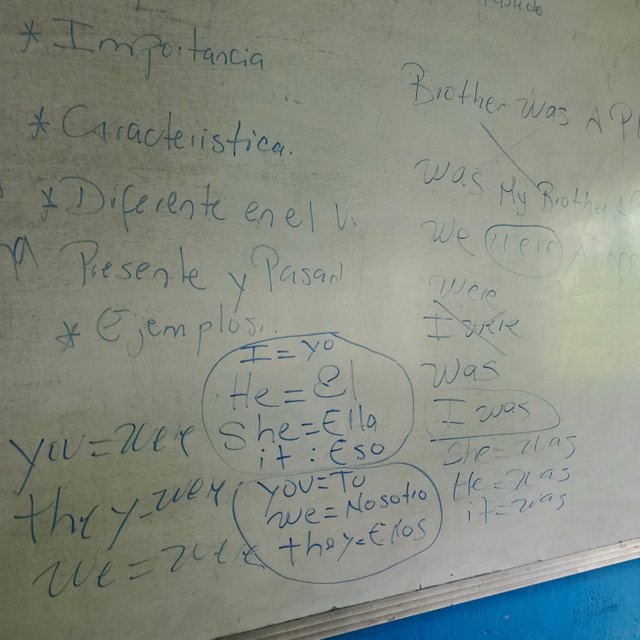 * Importancia
* Característica.
* Diferente en el V.
Presente y Pasan
* Ejemplos..
I = yo
He = El
She = Ella
it : Eso
you = To
we = Nosotro
they = Ellos
you = were
they = were
we = were
Brother was A
was My Brother A
we were
were
I were
was
I was
She = was
He = was
it = was